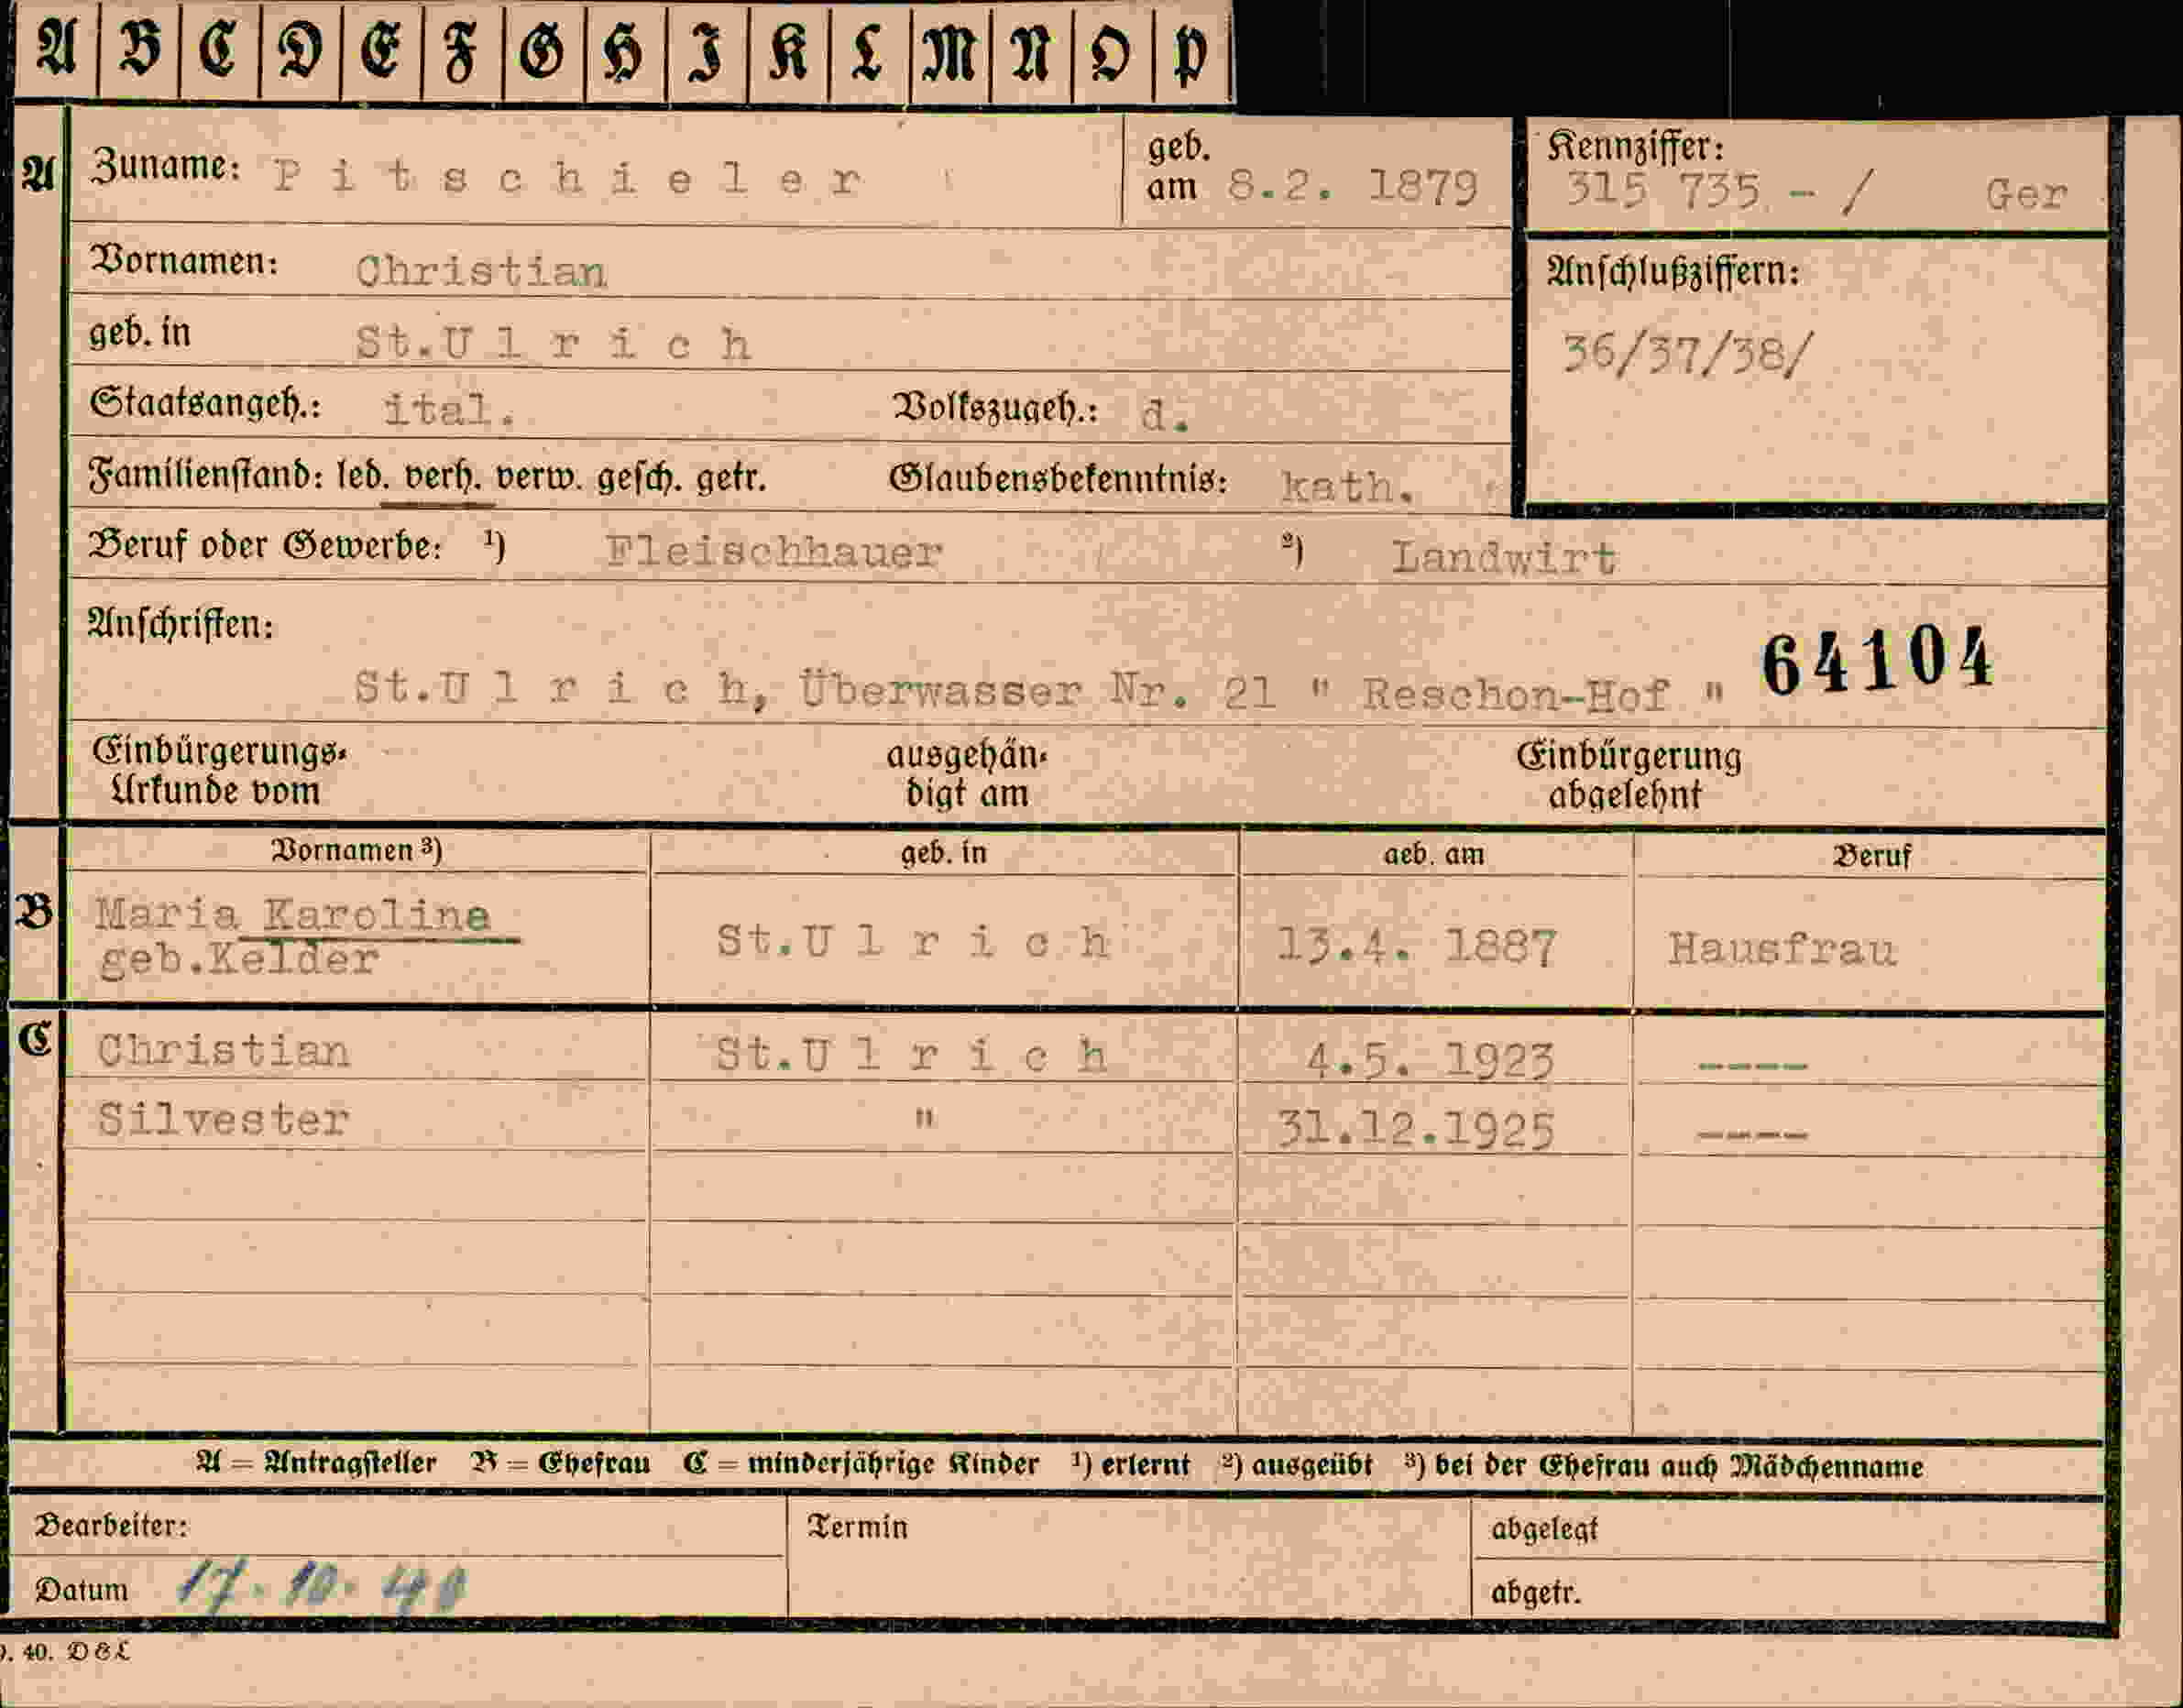 A B C D E F G H I K L M N O P
A Zuname: Pitschieler geb. am 8.2. 1879 Kennziffer: 315 735 - / Ger
Vornamen: Christian Anschlußziffern:
geb. in St.Ulrich 36/37/38/
Staatsangeh.: ital. Volkszugeh.: d.
Familienstand: led. verh. verw. gesch. getr. Glaubensbekenntnis: kath.
Beruf oder Gewerbe: ¹) Fleischhauer ²) Landwirt
Anschriften:
St.Ulrich, Überwasser Nr. 21 " Reschon-Hof " 64104
Einbürgerungs- ausgehän- Einbürgerung
Urkunde vom digt am abgelehnt
Vornamen ³) geb. in geb. am Beruf
B Maria Karoline St.Ulrich 13.4. 1887 Hausfrau
geb.Kelder
C Christian St.Ulrich 4.5. 1923 ----
Silvester " 31.12.1925 ----
A = Antragsteller B = Ehefrau C = minderjährige Kinder ¹) erlernt ²) ausgeübt ³) bei der Ehefrau auch Mädchenname
Bearbeiter: Termin abgelegt
Datum 17.10.40 abgetr.
9. 40. DEL